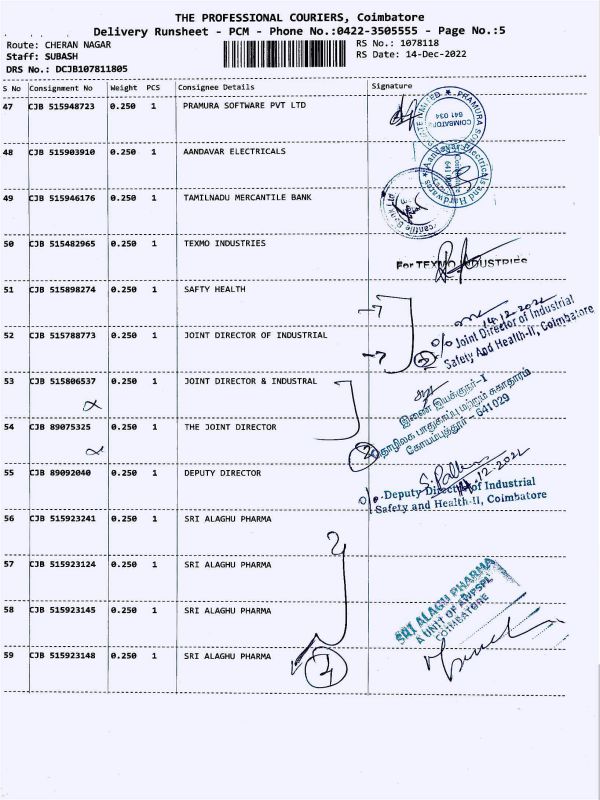 THE PROFESSIONAL COURIERS, Coimbatore
Delivery Runsheet - PCM - Phone No.:0422-3505555 - Page No.:5
Route: CHERAN NAGAR
RS No.: 1078118
Staff: SUBASH
RS Date: 14-Dec-2022
DRS No.: DCJB107811805
S No Consignment No Weight PCS Consignee Details Signature
47 CJB 515948723 0.250 1 PRAMURA SOFTWARE PVT LTD
PRAMURA
COIMBATORE
641 034
48 CJB 515903910 0.250 1 AANDAVAR ELECTRICALS
Aandavar Electricals and Hardwares
49 CJB 515946176 0.250 1 TAMILNADU MERCANTILE BANK
50 CJB 515482965 0.250 1 TEXMO INDUSTRIES
For TEXMO INDUSTRIES
51 CJB 515898274 0.250 1 SAFTY HEALTH
14.12.2022
52 CJB 515788773 0.250 1 JOINT DIRECTOR OF INDUSTRIAL
o/o Joint Director of Industrial
Safety And Health-II, Coimbatore
53 CJB 515806537 0.250 1 JOINT DIRECTOR & INDUSTRAL
இணை இயக்குநர்-I
தொழிலக பாதுகாப்பு மற்றும் சுகாதாரம்
கோயம்புத்தூர் - 641029
54 CJB 89075325 0.250 1 THE JOINT DIRECTOR
2
55 CJB 89092040 0.250 1 DEPUTY DIRECTOR
14.12.2022
o/o Deputy Director of Industrial
Safety and Health-II, Coimbatore
56 CJB 515923241 0.250 1 SRI ALAGHU PHARMA
57 CJB 515923124 0.250 1 SRI ALAGHU PHARMA
58 CJB 515923145 0.250 1 SRI ALAGHU PHARMA
SRI ALAGU PHARMA
A UNIT OF AWPSPL
COIMBATORE
59 CJB 515923148 0.250 1 SRI ALAGHU PHARMA
4